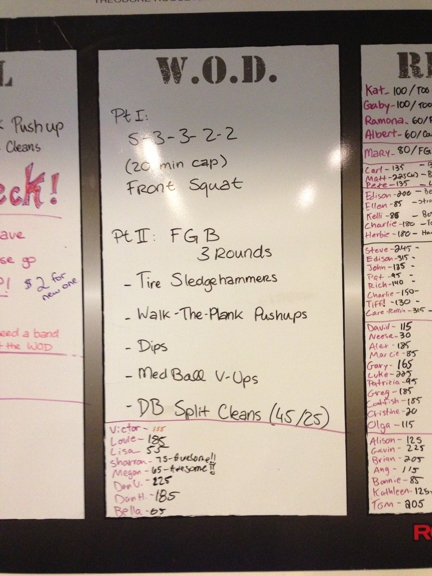 THEODORE ROOSE
L
Pushup
Cleans
eck!
ave
se go
$2 for
new one
eed a band
t the WOD
W.O.D.
Pt I:
5-3-3-2-2
(20 min cap)
Front Squat
Pt II: FGB
3 Rounds
- Tire Sledgehammers
- Walk-The-Plank Pushups
- Dips
- Med Ball V-Ups
- DB Split Cleans (45/25)
Victor - 155
Louie - 185
Lisa - 55
Sharron - 75 - Awesome!!
Megan - 65 - Awesome!!
Dan U. - 225
Dan H. - 185
Bella - 65
RE
Kat - 100/Too
Gaby - 100/Too
Ramona - 60/
Albert - 60/
Mary - 80/FG
Carl - 135
Matt - 225
- 135
Edison - 200
Ellen - 85
Kelli - 85
Charlie - 180
Herbie - 180
Steve - 245 -
Edison - 315 -
John - 135 -
Pat - 95
Rich - 140
Charlie - 150 -
Tiff - 130 -
- 315
David - 115
Neese - 30
Alex - 185
Marcie - 85
Gary - 165
Luke - 225
Patricia - 95
Greg - 185
- 185
Cristina - 20
Olga - 115
Alison - 125
Gavin - 225
Brian - 205
Ang - 115
Bonnie - 85
Kathleen - 125
Tom - 205
R